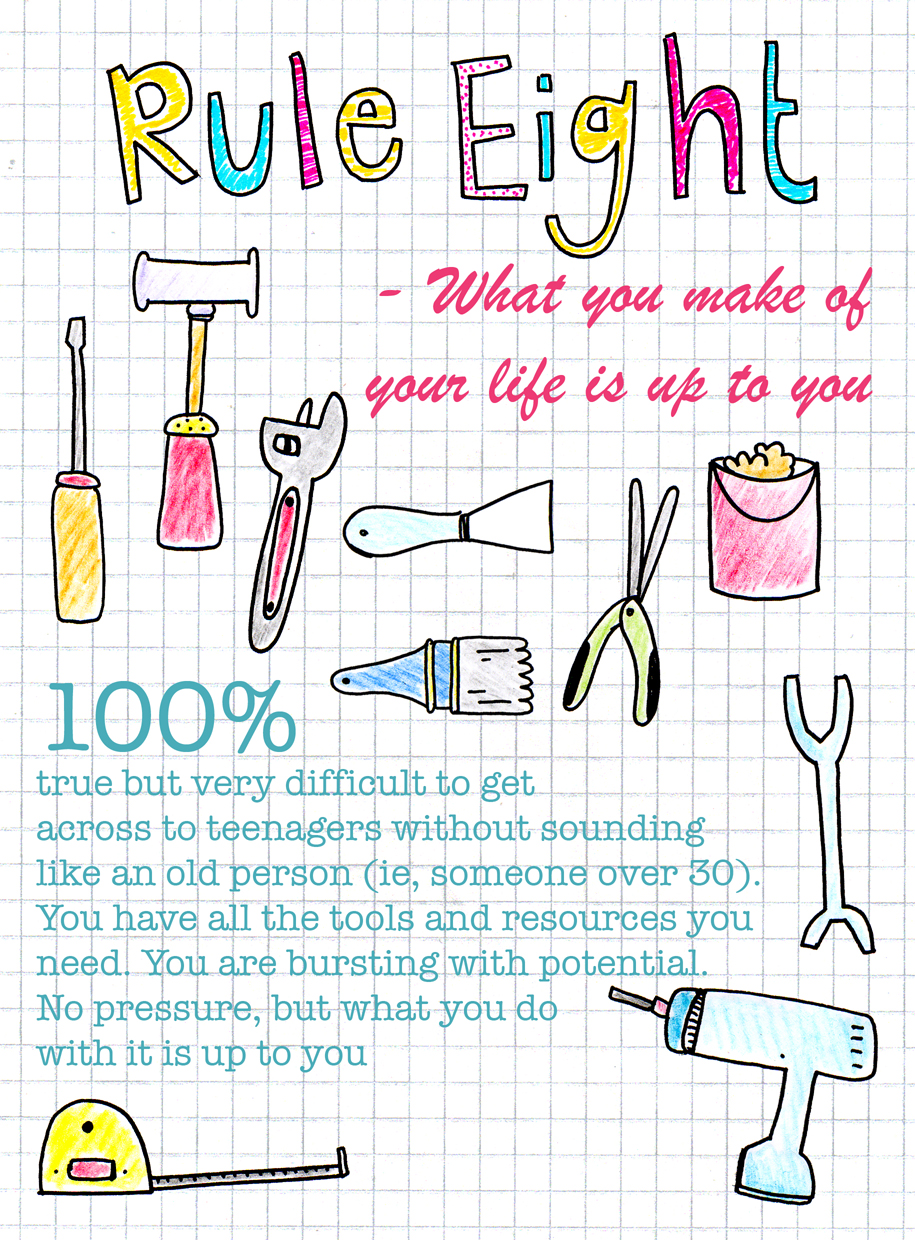 Rule Eight
- What you make of
your life is up to you
100%
true but very difficult to get
across to teenagers without sounding
like an old person (ie, someone over 30).
You have all the tools and resources you
need. You are bursting with potential.
No pressure, but what you do
with it is up to you